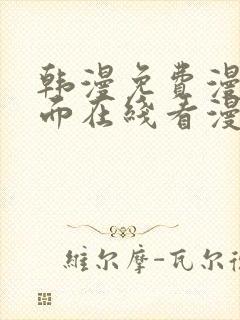 韩漫免费漫
而在线看漫
維尔摩-瓦尔